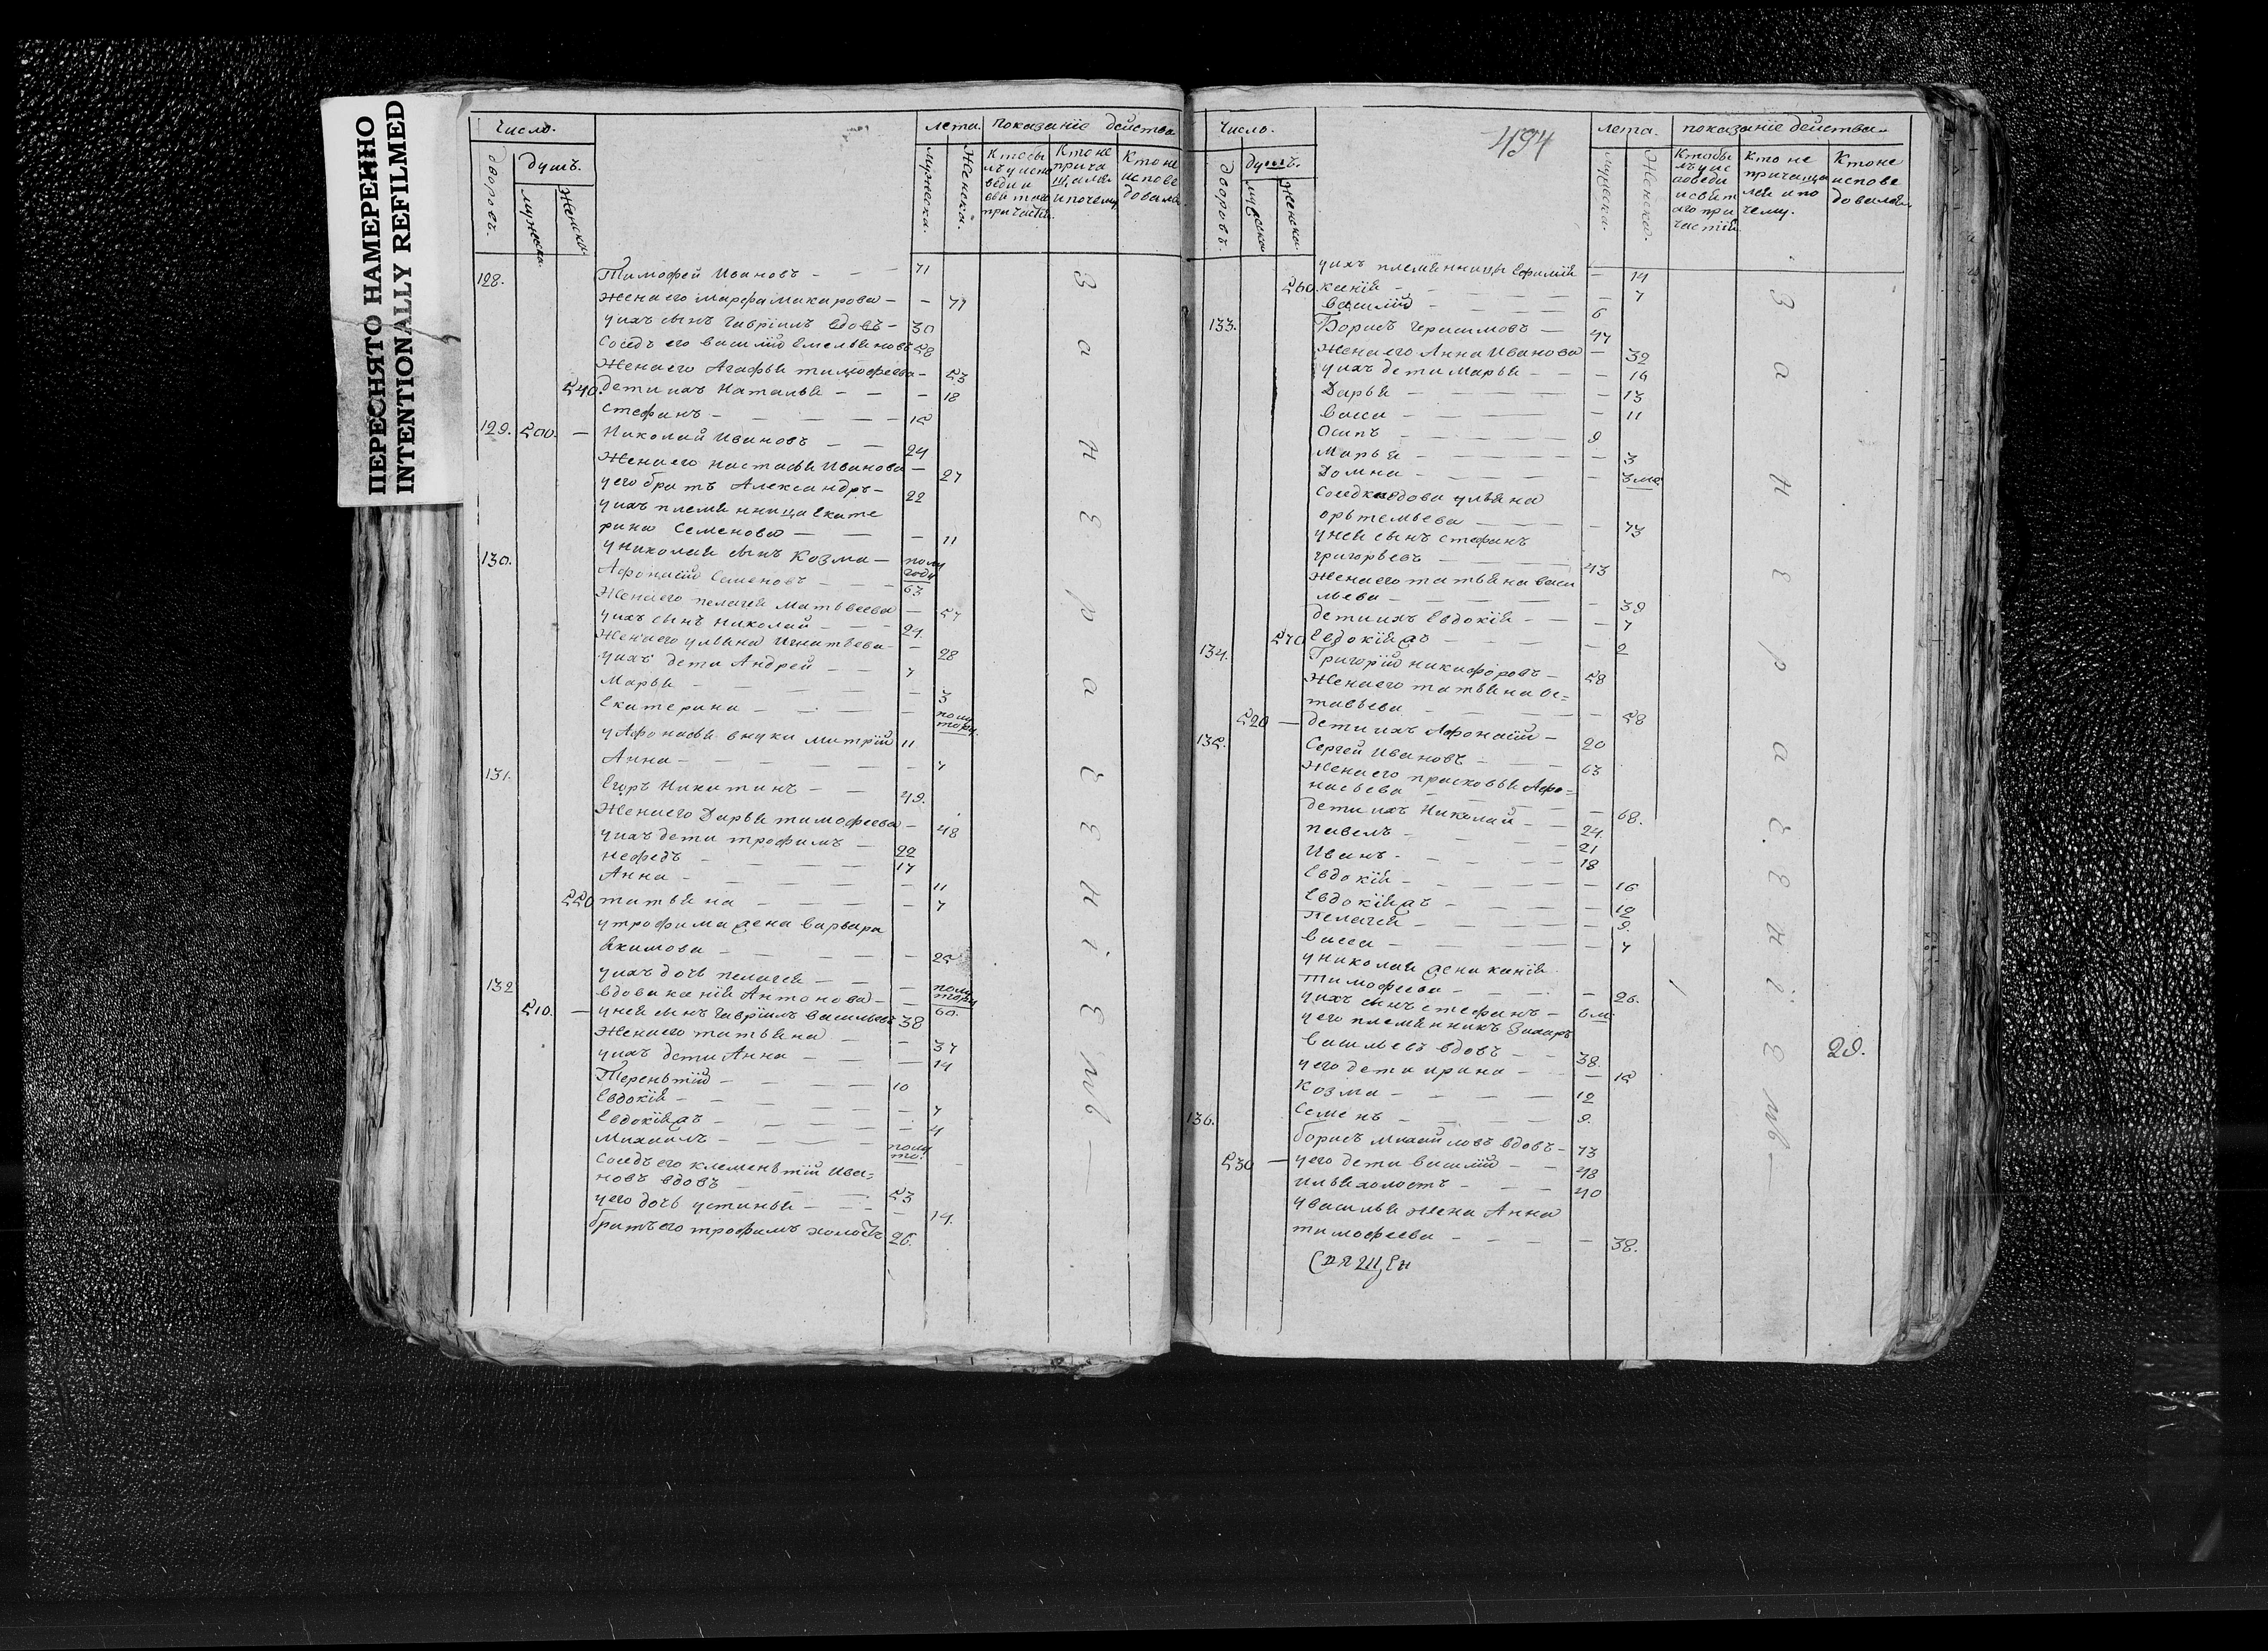 ПЕРЕСНЯТО НАМЕРЕННО
INTENTIONALLY REFILMED
Число. лета. показанiе действа
дворовъ. душъ. мужеска. женска. мужеска. женска. Кто бы лъ у испо веди и свя таго причастiя. Кто не прича щался и почему. Кто не испове довался
128. Тимофей Ивановъ — — 71
Жена его марфа макарова — — 71
у ихъ сынъ Гаврiилъ вдовъ — 30
Соседъ его василiй емельяновъ 58
Жена его Агафья тимофеева — 53
540. дети ихъ Наталья — — — 18
Стефанъ — — — — 15
129. 500. — Николай Ивановъ — — 24
Жена его настасья Иванова — 27
у его братъ Александръ — 22
у ихъ племянница Екате
рина Семенова — — — 11
у николая сынъ Козма — полу году
130. Афонасiй Семеновъ — — 63
Жена его пелагея матвеева — 57
у ихъ сынъ николай — — — 29.
Жена его ульяна Игнатьева — — 28
у ихъ дети Андрей — — 7
Марья — — — — — 3
Екатерина — — — — полу тору.
у Афонасья внуки митрiй 11
Анна — — — — — 7
131. Егоръ Никитинъ — — 49.
Жена его Дарья тимофеева — 48
у ихъ дети трофимъ — 22
нефедъ — — — — 17
Анна — — — — — 11
550 татьяна — — — — 7
у трофима жена варвара
Якимова — — — — — 25
у ихъ дочь пелагея — — — полу тору
132 вдова ксенiя Антонова — — 60.
510. — у ней сынъ Гаврiилъ васильевъ 38
Жена его татьяна — — 37
у ихъ дети Анна — — — 14
Терентiй — — — — 10
Евдокiя — — — — — 7
Евдокiя жъ — — — — 4
Михаилъ — — — полу то.
Соседъ его клементiй Ива=
новъ вдовъ — — — 53
у его дочь устинья — — — 14.
братъ его трофимъ холостъ 26.
За нераченiемъ —
494
Число. лета. показанiе действа
дворовъ. душъ. мужеска. женска. мужеска. женска. Кто бы лъ у ис поведи и свят аго при частiя. Кто не причаща лся и по чему. Кто не испове довался
у ихъ племянницы Ефимiя — 14
560. ксенiя — — — — — 7
василiй — — — — 6
133. Борисъ Герасимовъ — 47
Жена его Анна Иванова — 32
у ихъ дети Марья — — — 16
Дарья — — — — — 13
васса — — — — — 11
Осипъ — — — — 9
Марья — — — — — 3
Домна — — — — — 3 ме.
Соседка вдова ульяна
Артемьева — — — — 73
у ней сынъ Стефанъ
григорьевъ — — — 43
Жена его татьяна васи
льева — — — — — 39
дети ихъ Евдокiя — — — 7
570 Евдокiя жъ — — — — 2
134. Григорiй никифоровъ — 58
Жена его татьяна Ос=
тавьева — — — — 58
520 — дети ихъ Афонасiй — 20
135. Сергей Ивановъ — — 63
Жена его прасковья Афо=
насьева — — — — 68.
дети ихъ Николай — — 24.
павелъ — — — — 21
Иванъ — — — — 18
Евдокiя — — — — — 16
Евдокiя жъ — — — — 12
Пелагея — — — — 9.
васса — — — — — 7
у николая жена ксенiя
тимофеева — — — — 26.
у ихъ сынъ стефанъ — 6 м.
у его племянникъ Захаръ
васильевъ вдовъ — — 38.
у его дети ирина — — — 15
Козма — — — — 12
Семенъ — — — — 9.
136. борисъ михайловъ вдовъ — 73
530 — у его дети василiй — — 48
илья холостъ — — — 40
у василья жена Анна
тимофеева — — — — 38.
Священ
За нераченiемъ — 29.